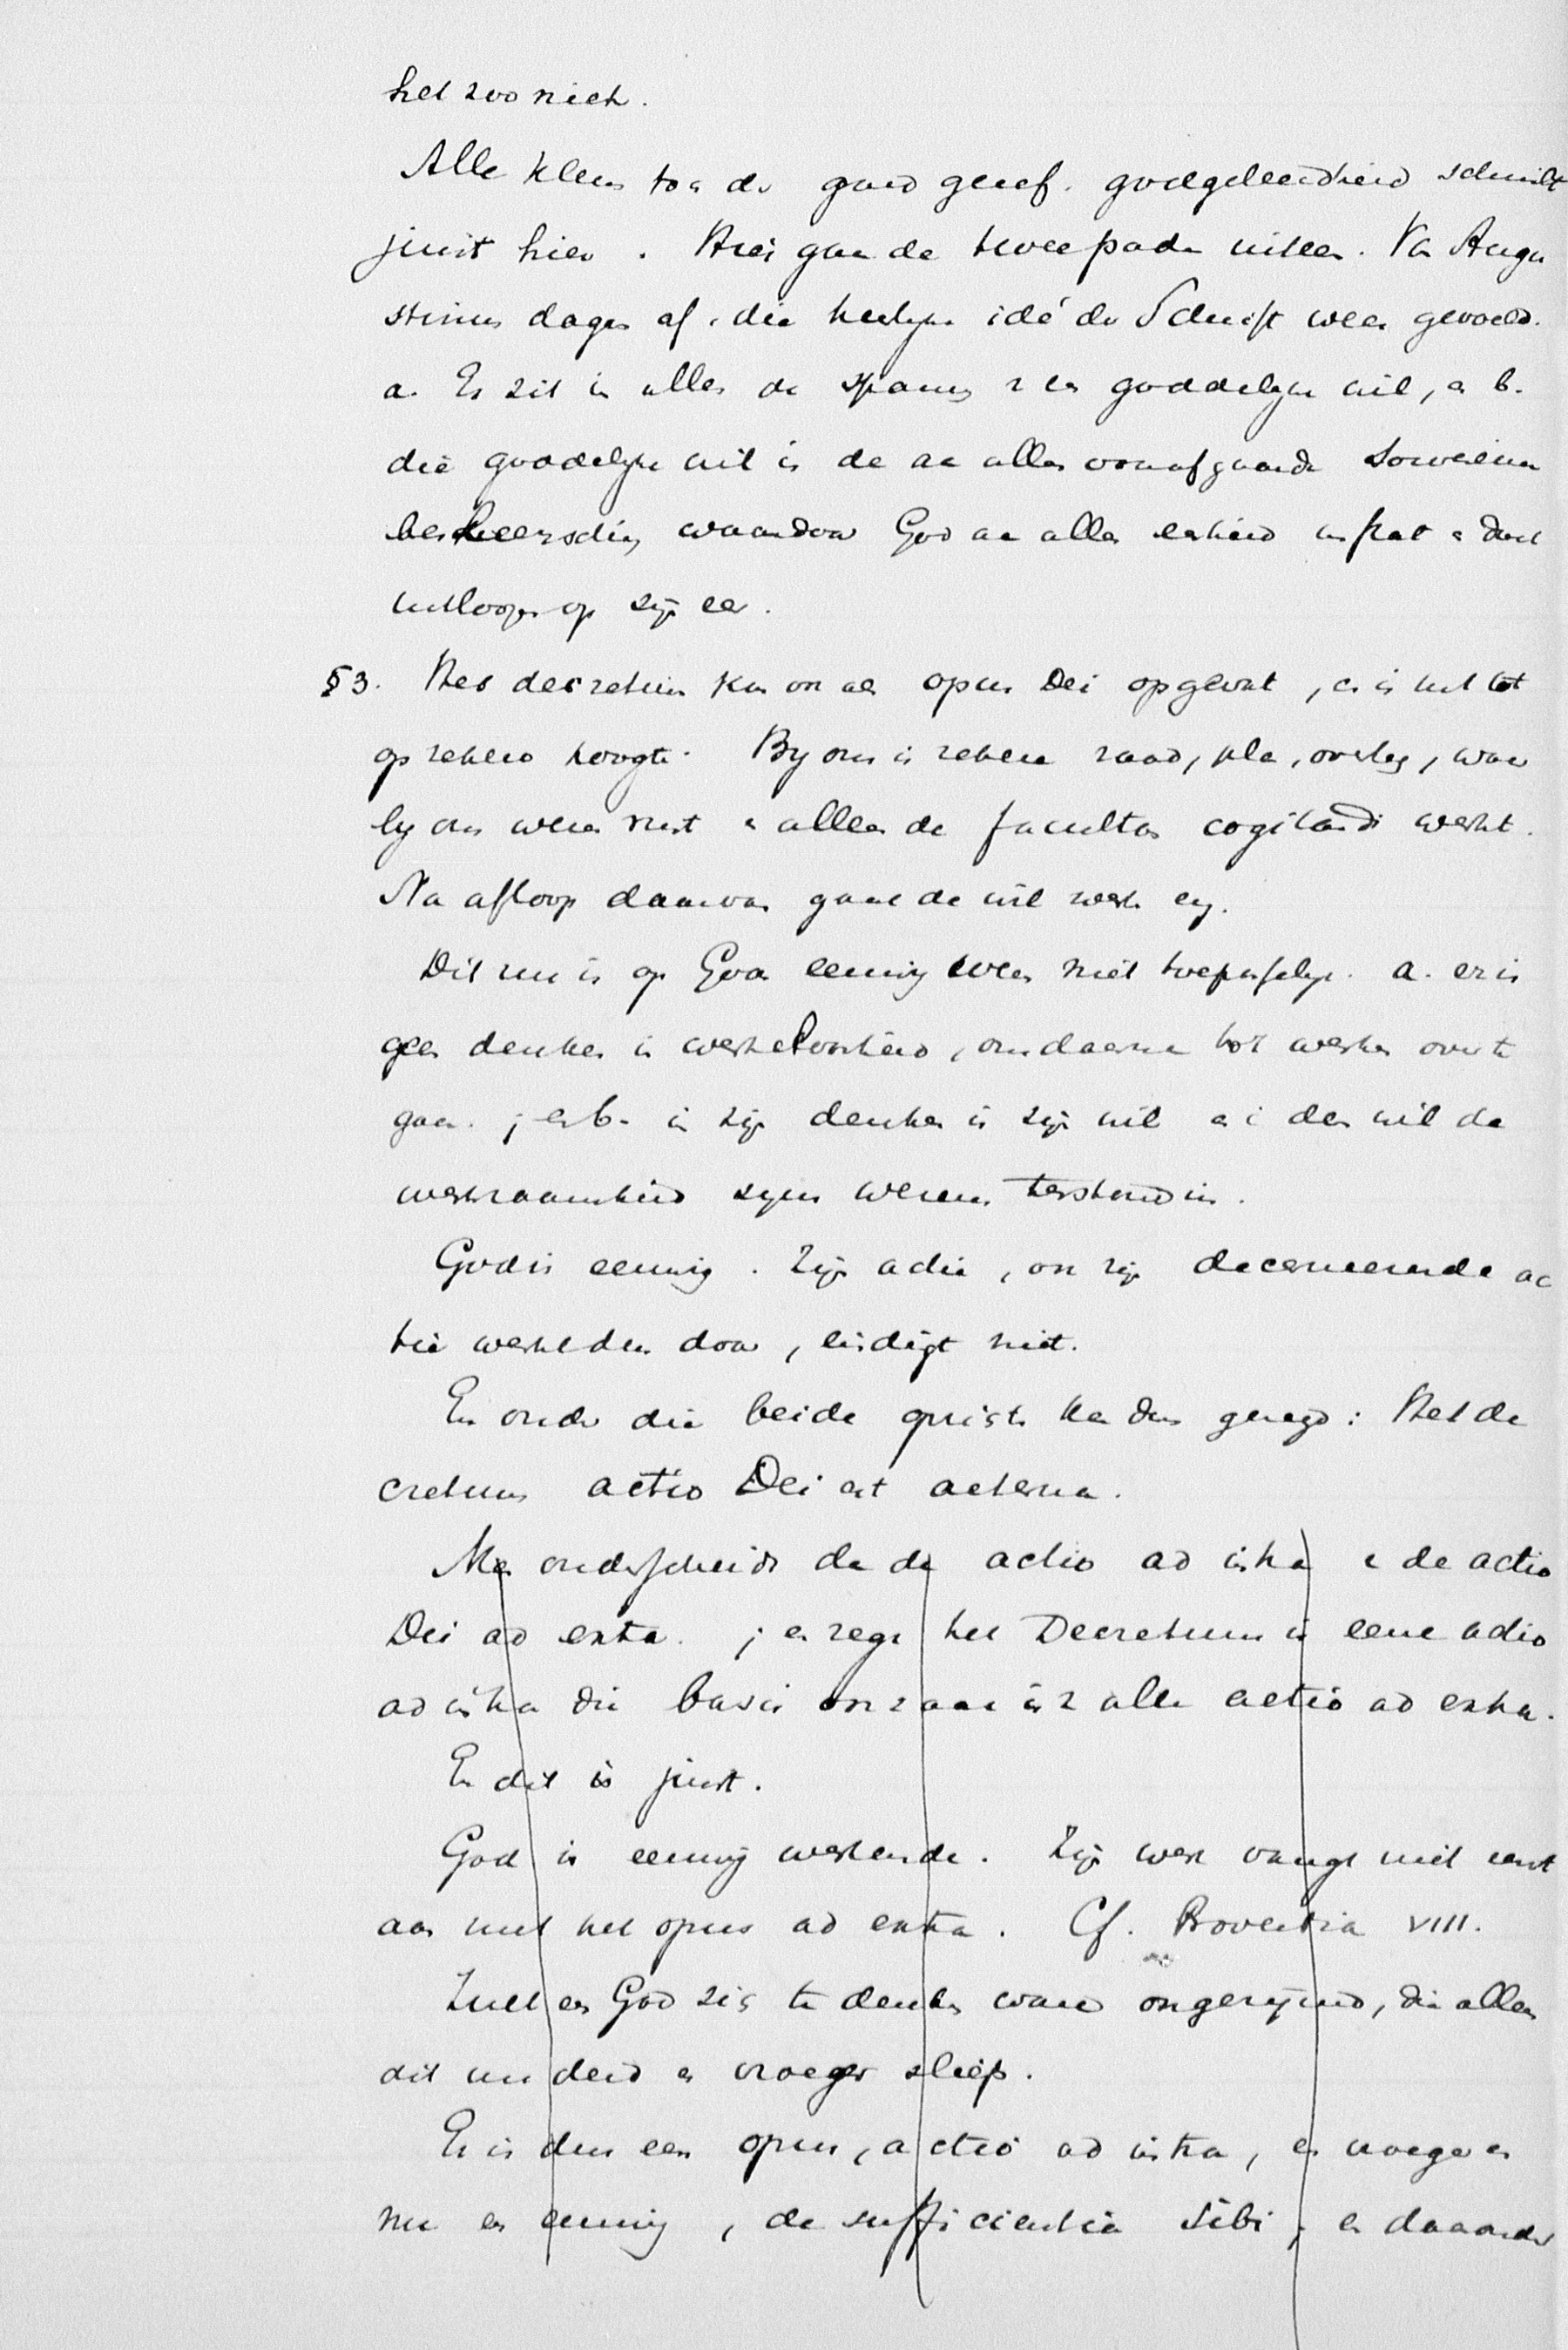 het zoo niet.
Alle klem toch der goed geref. godgeleerdheid schuilt
juist hier. Hier gaan de twee paden uiteen. Van Augu
stinus dagen af is die heerlijke idé der Schrift weer gevoeld.
a. Er zit in alles de spanning v een goddelijken wil, en b.
die goddelijke wil is de aan alles voorafgaande souvereine
beheersching waardoor God aan alles eenheid inprent en doet
uitloopen op zijn eer.
§3. Het decretum kan ook als opus Dei opgevat, en is dit tot
op zekere hoogte. Bij ons is zekere raad, plan, overleg, waar
bij ons wezen rust en alleen de facultas cogitandi werkt.
Na afloop daarvan gaat de wil werken.
Dit nu is op Gods eeuwig wezen niet toepasselijk. a. er is
geen denken in werkeloosheid, om daarna tot werken over te
gaan; en b. in zijn denken is zijn wil en in den wil de
werkzaamheid zijns wezens terstond in.
God is eeuwig. Zijn actie, ook zijn decerneerende ac
tie werkt dus door, eindigt niet.
En onder die beide is juist kan dus gezegd: Het de
cretum actio Dei est aeterna.
Men onderscheidt dan de actio ad intra en de actio
Dei ad extra; en zegt het Decretum is eene actio
ad intra die basis oorzaak is v alle actio ad extra.
En dit is juist.
God is eeuwig werkende. Zijn werk vangt niet eerst
aan met het opus ad extra. Cf. Proverbia VIII.
Zulk een God zich te denken ware ongerijmd, die alleen
dit nu deed en vroeger sliep.
Er is dus een opus, actio ad intra, en vroeger en
nu en eeuwig, de sufficientia sibi, en daaronder